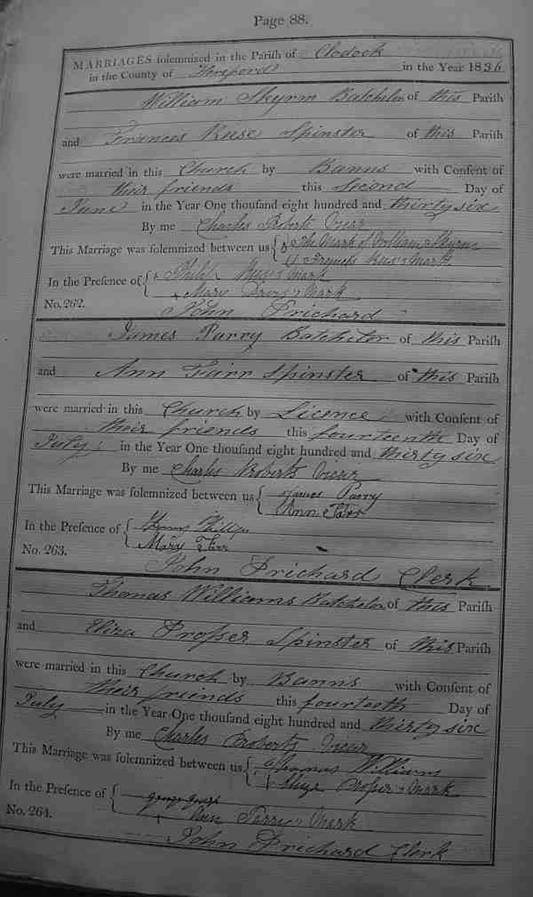 Page 88.
MARRIAGES solemnized in the Parish of Clodock
in the County of Hereford in the Year 1836
William Skyrm Batchelor of this Parish
and Frances Ruse Spinster of this Parish
were married in this Church by Banns with Consent of
their friends this Second Day of
June in the Year One thousand eight hundred and thirty six
By me Charles Roberts Vicar
This Marriage was solemnized between us { The Mark of William Skyrm
Frances Ruse's Mark
In the Presence of { Philip Mark
Mary Mark
No. 262.
John Prichard
James Parry Batchelor of this Parish
and Ann Farr Spinster of this Parish
were married in this Church by Licence with Consent of
their friends this fourteenth Day of
July in the Year One thousand eight hundred and thirty six
By me Charles Roberts Vicar
This Marriage was solemnized between us { James Parry
Ann Farr
In the Presence of { Phillips
Mary Farr
No. 263.
John Prichard Clerk
Thomas Williams Batchelor of this Parish
and Eliza Proper Spinster of this Parish
were married in this Church by Banns with Consent of
their friends this fourteeth Day of
July in the Year One thousand eight hundred and thirty six
By me Charles Roberts Vicar
This Marriage was solemnized between us { Thomas Williams
Eliza Proper's Mark
In the Presence of { George
Ann Parry's Mark
No. 264.
John Prichard Clerk